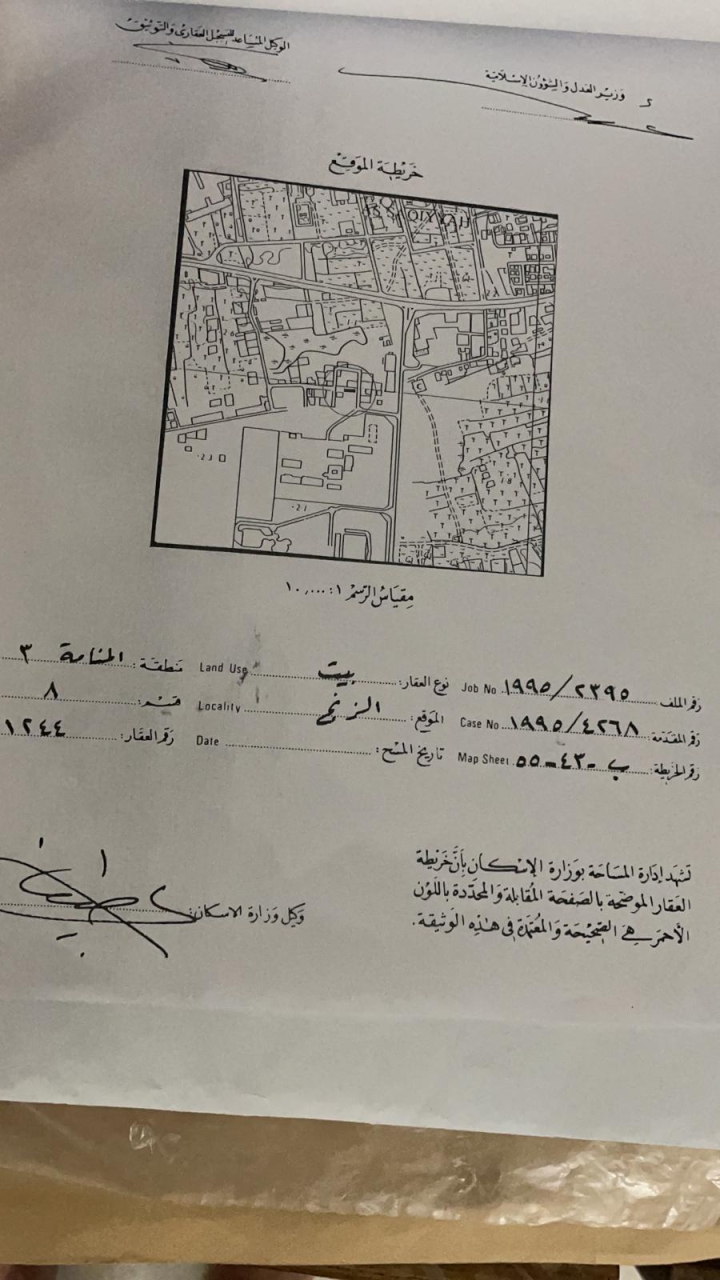 الوكيل المساعد للتسجيل العقاري والتوثيق
وزير العدل والشؤون الإسلامية
خريطة الموقع
٢١
٢٣
مقياس الرسم ١ : ١٠,٠٠٠
رقم الملف ١٩٩٥/٢٣٩٥ Job No نوع العقار: بيت Land Use منطقة: المنامة ٣
رقم المقدمة ١٩٩٥/٤٢٦٨ Case No الموقع: الزنج Locality قسم: ٨
رقم الخريطة: ب - ٤٣ - ٥٥ Map Sheet تاريخ المنح: Date رقم العقار: ١٢٤٤
تشهد إدارة المساحة بوزارة الإسكان بأن خريطة
العقار الموضحة بالصفحة المقابلة والمحددة باللون
الأحمر هي الصحيحة والمعتمدة في هذه الوثيقة.
وكيل وزارة الاسكان: